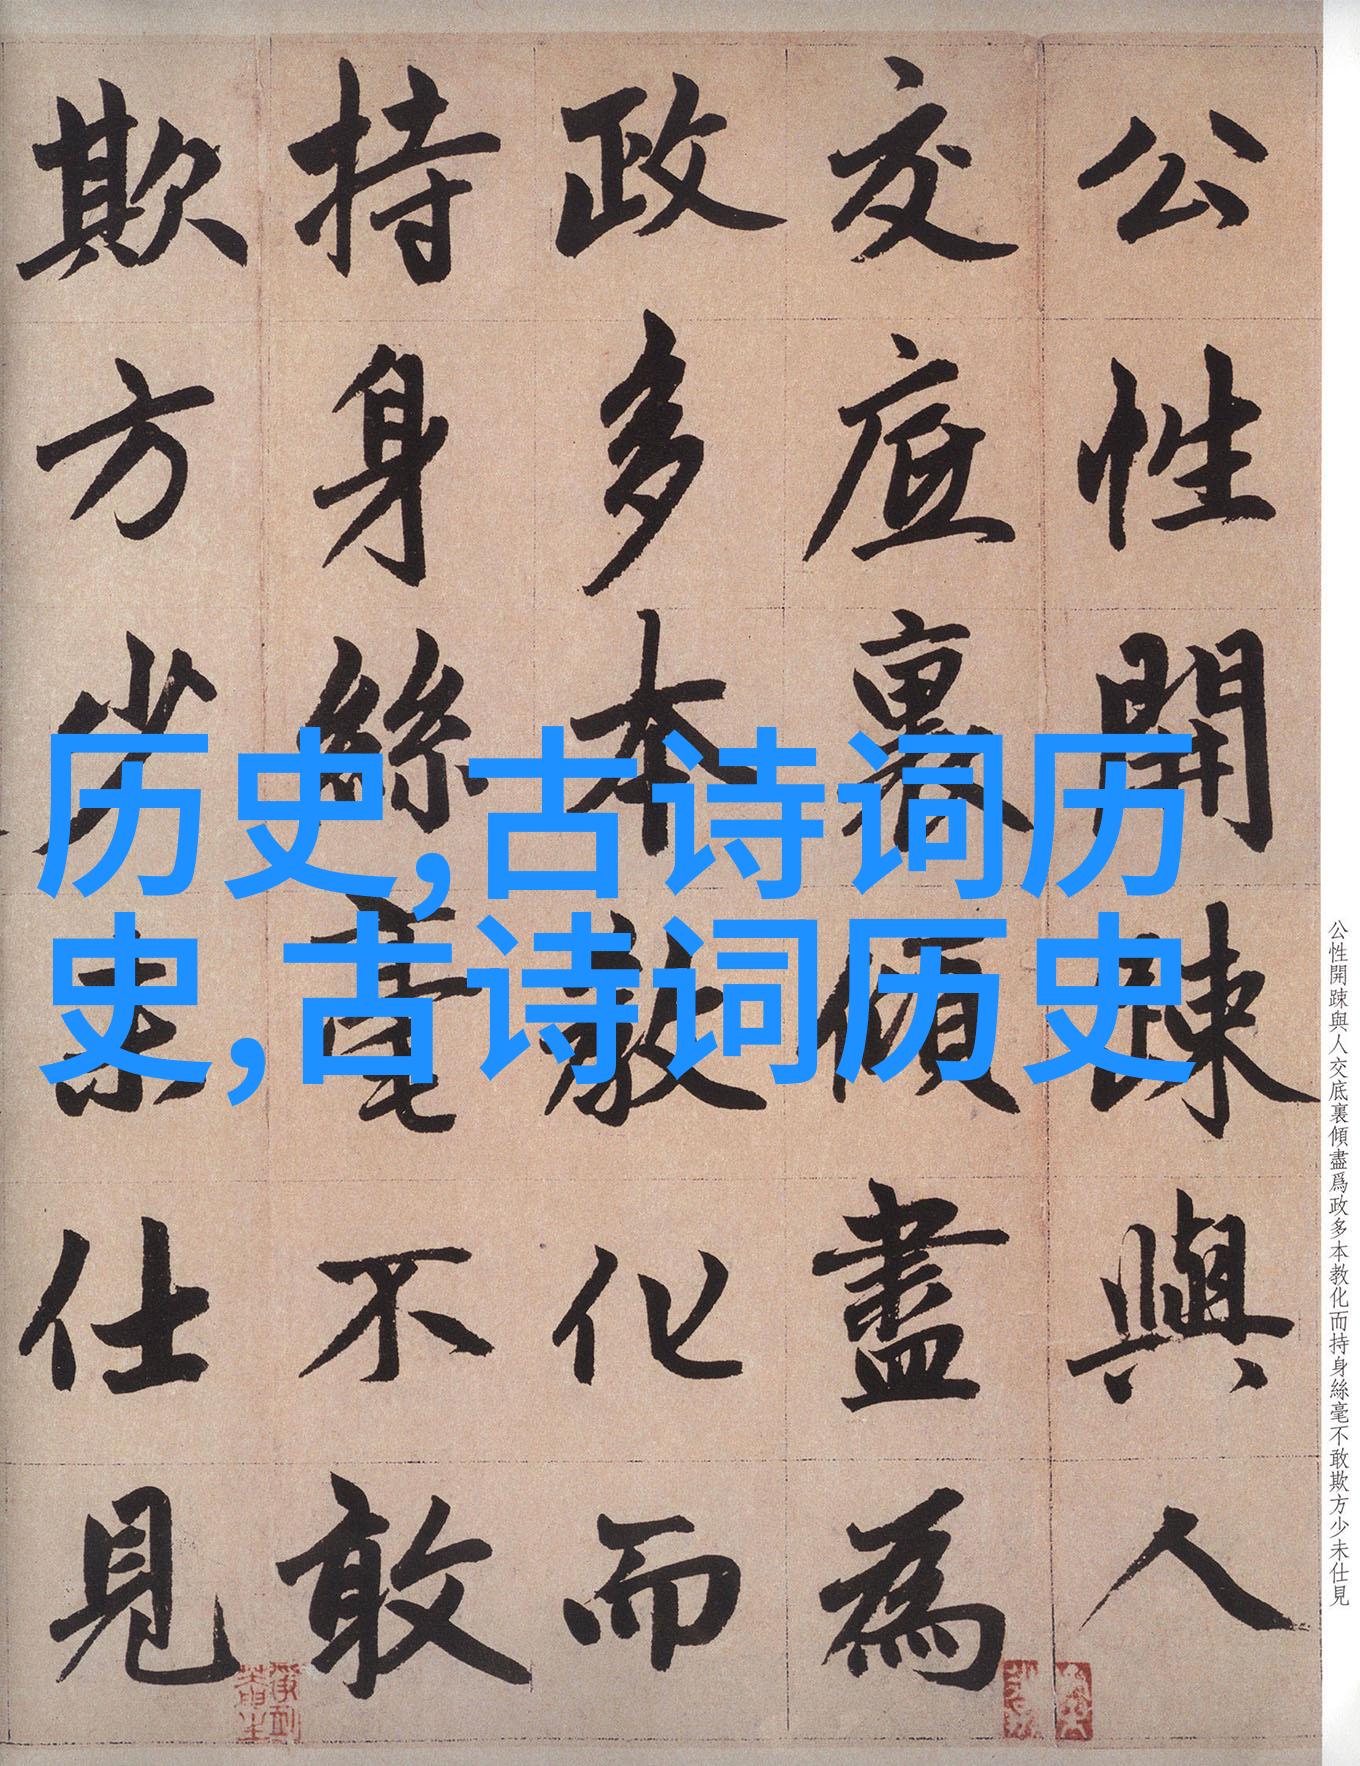 公性開疎與人
交底裏傾盡為
政多本教化而
持身絲毫不敢
欺方少未仕見
历史,古诗词历
史,古诗词历史
公性開踈與人交底裏傾盡爲政多本教化而持身絲毫不敢欺方少未仕見